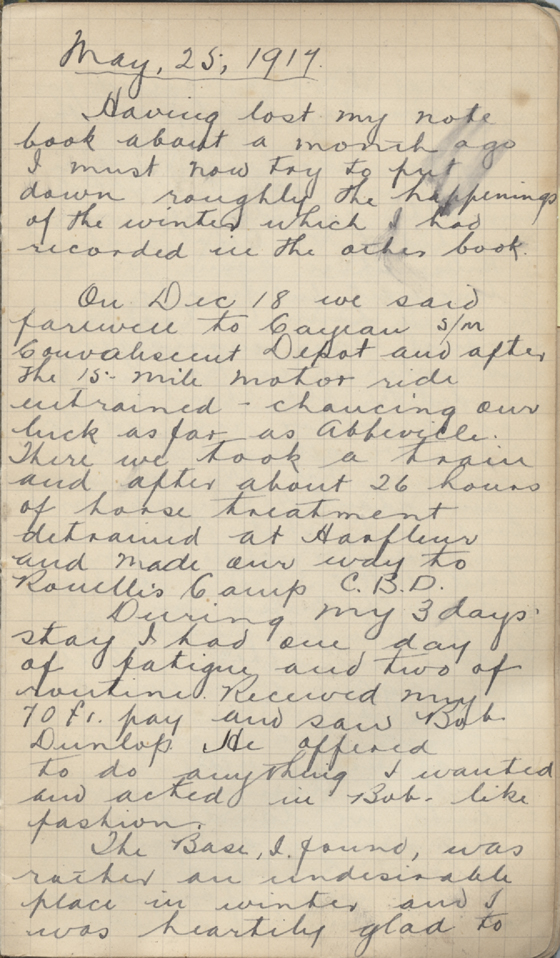 May, 25, 1917.
Having lost my note
book about a month ago
I must now try to put
down roughly the happenings
of the winter which I had
recorded in the other book.
On Dec 18 we said
farewell to Cayeau s/m
Convalescent Depot and after
the 15- mile motor ride
entrained - chancing our
luck as far as Abbeville.
There we took a train
and after about 26 hours
of horse treatment
detrained at Harfleur
and made our way to
Rouelles Camp C.B.D.
During my 3 days'
stay I had one day
of fatigue and two of
routine. Received my
70 fr. pay and saw Bob
Dunlop. He offered
to do anything I wanted
and acted in Bob- like
fashion.
The Base, I found, was
rather an undesirable
place in winter and I
was heartily glad to